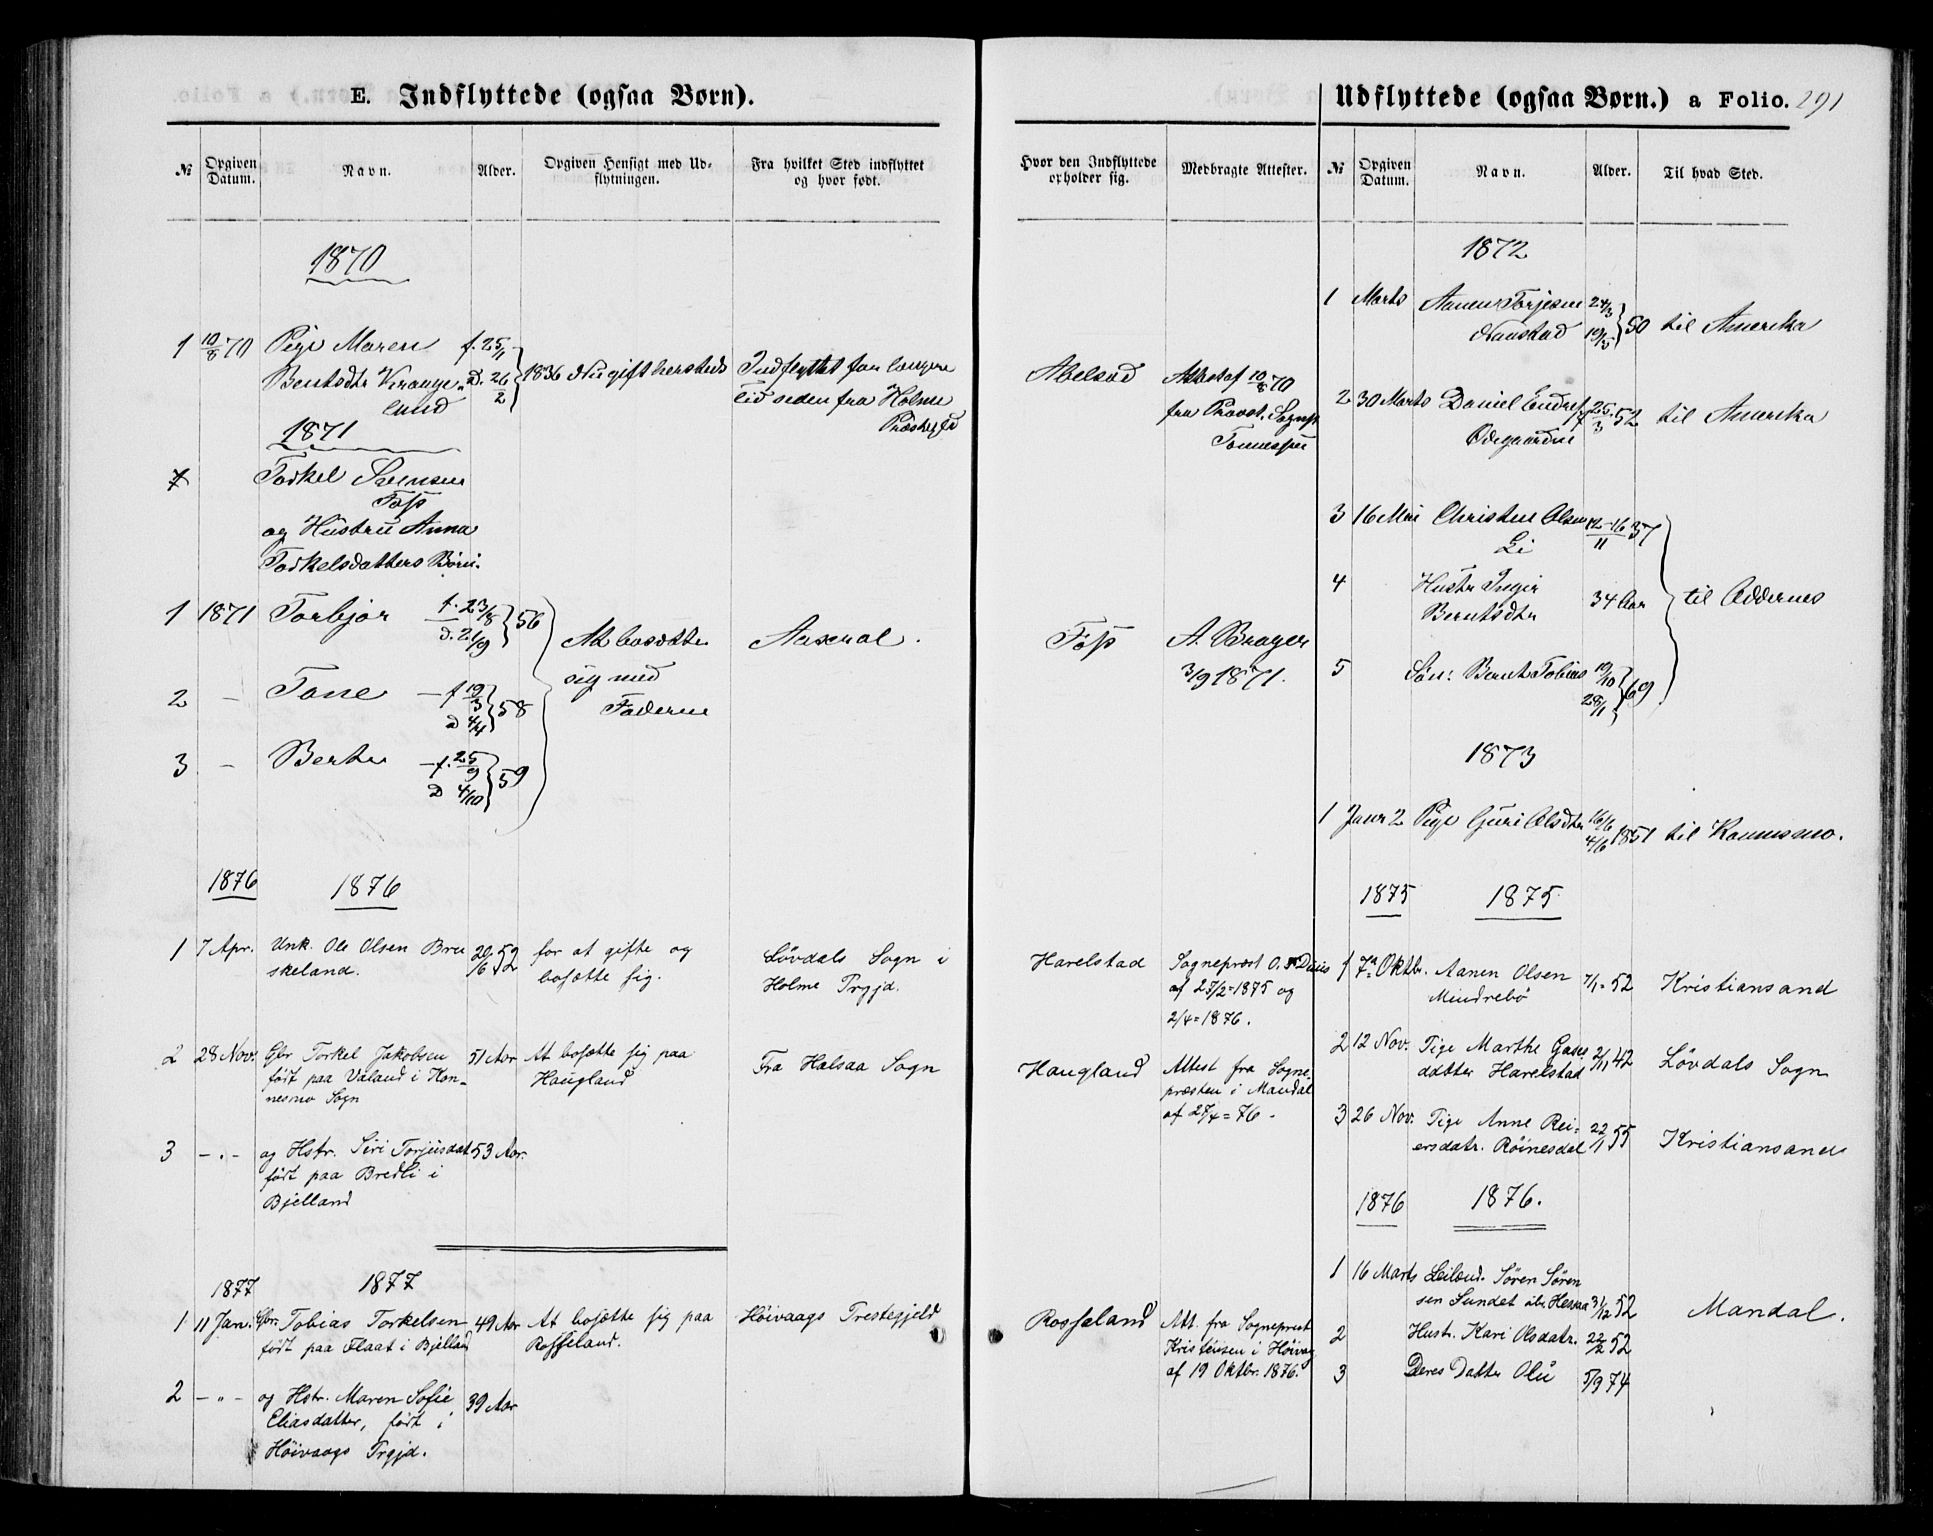 E. Indflyttede (ogsaa Børn).
№ Opgiven Datum. Navn. Alder. Opgiven Hensigt med Udflytningen. Fra hvilket Sted indflyttet og hvor født.
Hvor den Indflyttede opholder sig. Medbragte Attester.
1870
1 10/8 70 Pige Maren f. 25/1
Bentsdtr D. 26/2 1836 Nu gift hersteds
lund
Indflyttet for længere
Tid siden fra Holme
Præstegjd
Abelsød
Attest af 10/8 70
fra Provst. Sognp
1871
Torkel
Føss
og Hustru Anna
Torkelsdatters Børn.
1 1871 Torbjør f. 23/8 d. 21/9 56
At bosætte
sig med
Faderne
Aaseral.
Føss
3/9 1871.
2 - Tone - f 19/3 D 4/4 58
3 - Berte - f. 25/9 D 4/10 59
1876 1876
1 7 Apr. Unk. Ole Olsen Bru
skeland. 20/6 52
for at gifte og
bosætte sig.
Løvdals Sogn i
Holme Prgjd.
Harelstad
Sogneprest O.
af 27/2=1875 og
2/4=1876.
2 28 Nov. Gbr Torkel Jakobsen
født paa Valand i Kon-
nesmo Sogn
51 Aar
At bosætte sig paa
Haugland
Fra Halsaa Sogn
Haugland
Attest fra Sogne
præsten i Mandal
af 27/4=76.
3 -.- og Hstr. Siri Torjusdat 53 Aar.
født paa Bredli i
Bjelland
1877 1877
1 11 Jan. Gbr. Tobias Torkelsen 49 Aar
født paa Flaat i Bjelland
At bosætte sig paa
Rosseland.
Höivaags Prestegjeld
Rosseland
Att. fra Sogneprest
Kristensen i Höivag
af 19 Oktbr. 1876.
2 -"- og Hstr. Maren Sofie
Eliasdatter, født i 39 Aar
Höivaags Prgjd.
Udflyttede (ogsaa Børn.) a Folio. 291
№ Opgiven Datum. Navn. Alder. Til hvad Sted.
1872
1 Marts Aanen Torjesen
Naustad
24/3 19/5 50 til Amerika
2 30 Marts Daniel
Ødegaarden
25/3 52 til Amerika
3 16 Mai Christen Olsen
Li
12-16/11 37
4 Hustr Inger
Berntsdtr
34 Aar til Oddernes
5 Søn: Bernt Tobias 19/10 28/11 69
1873
1 Janr 2 Pige Guri Olsdtr 16/6 4/6 1851 til Konnesmo.
1875 1875
1 7de Oktbr. Aanen Olsen
Mindrebö
7/1=52 Kristiansand
2 12 Nov. Pige Marthe
datter Harelstad
2/11 42 Lövdals Sogn
3 26 Nov. Pige Anne Rei-
ersdatr. Röinesdal 22/1 55 Kristiansand
1876 1876.
1 16 Marts Leilænd. Sören Sören
sen Sundet 31/12 52
Mandal.
2 Hust. Kari Olsdatr. 22/2 52
3 Deres Datter 5/9 74